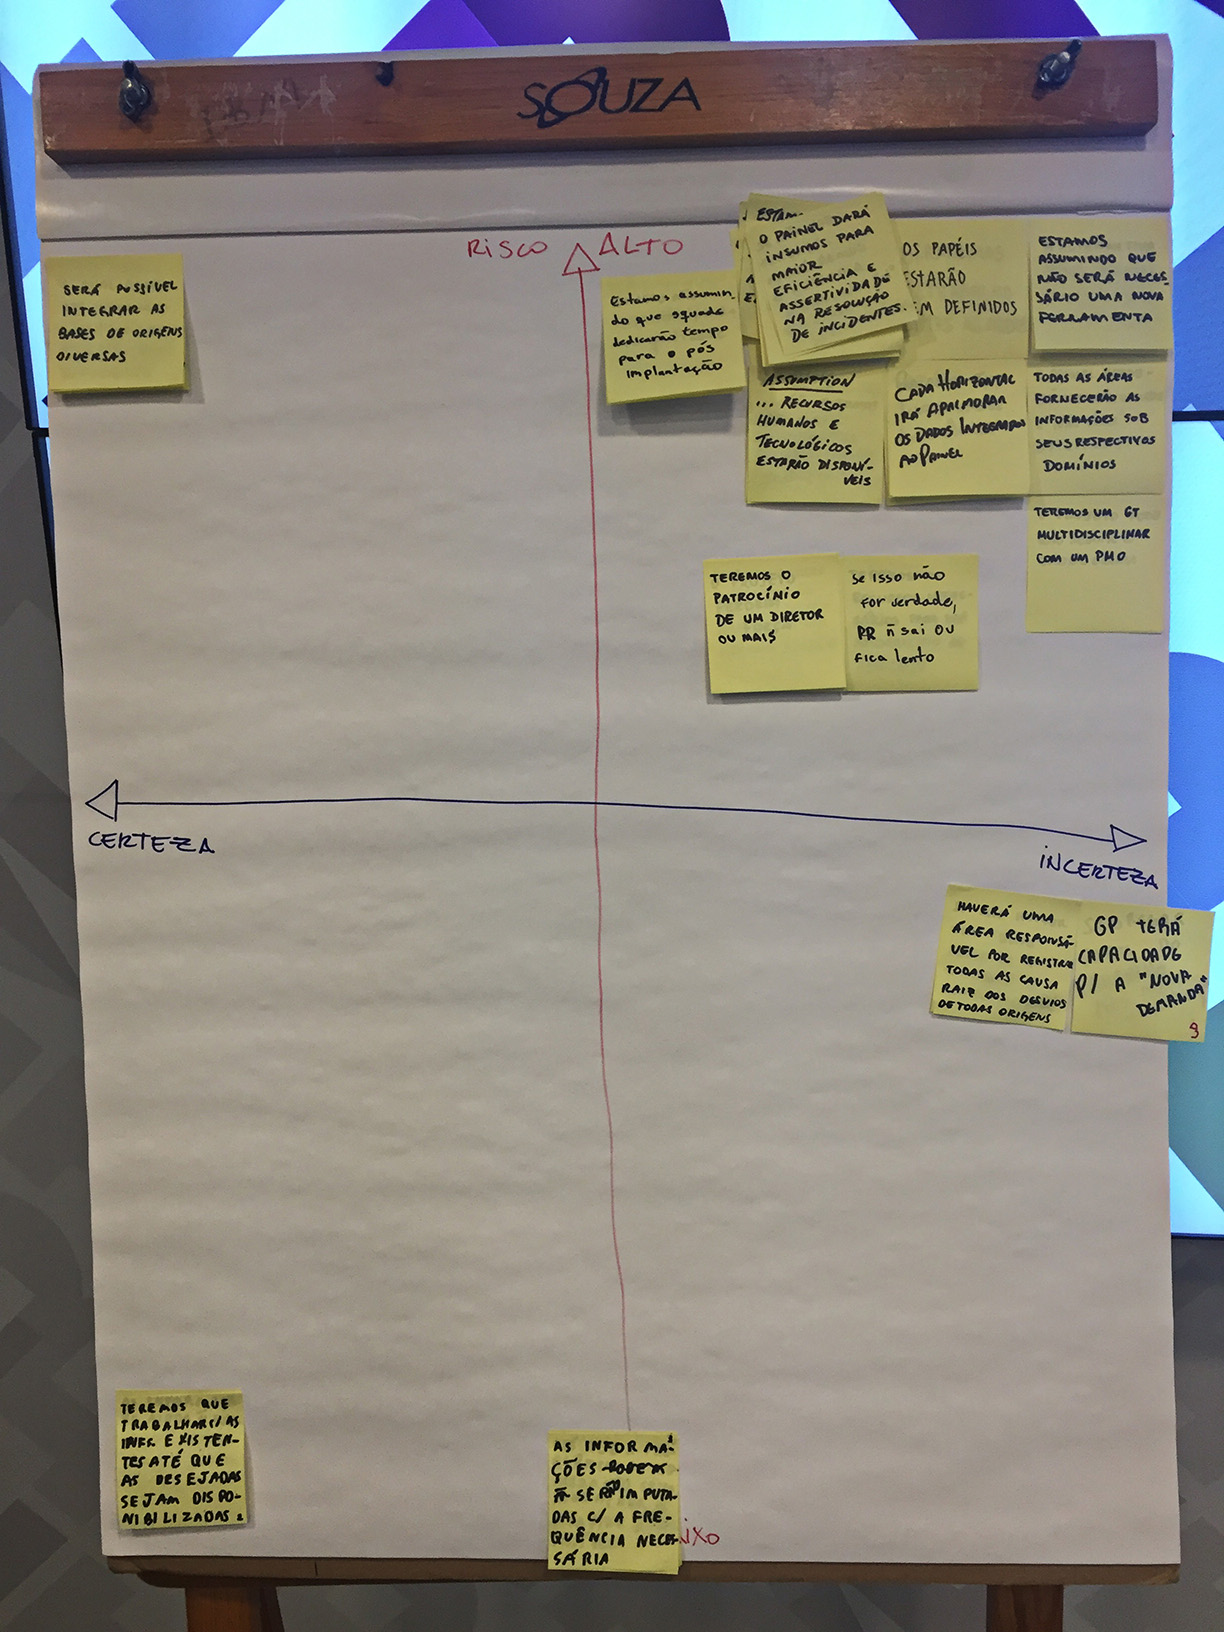 SOUZA
RISCO ALTO
SERÁ POSSÍVEL
INTEGRAR AS
BASES DE ORIGENS
DIVERSAS
Estamos assumin-
do que squads
dedicarão tempo
para o pós
implantação
ESTAM
O PAINEL DARÁ
INSUMOS PARA
MAIOR
EFICIÊNCIA E
ASSERTIVIDADE
NA RESOLUÇÃO
DE INCIDENTES.
OS PAPÉIS
ESTARÃO
EM DEFINIDOS
ESTAMOS
ASSUMINDO QUE
NÃO SERÁ NECES-
SÁRIO UMA NOVA
FERRAMENTA
ASSUMPTION
... RECURSOS
HUMANOS E
TECNOLÓGICOS
ESTARÃO DISPONÍ-
VEIS
CADA HORIZONTAL
IRÁ APRIMORAR
OS DADOS INTEGRADOS
AO PAINEL
TODAS AS ÁREAS
FORNECERÃO AS
INFORMAÇÕES SOB
SEUS RESPECTIVOS
DOMÍNIOS
TEREMOS UM GT
MULTIDISCIPLINAR
COM UM PMO
TEREMOS O
PATROCÍNIO
DE UM DIRETOR
OU MAIS
se isso não
for verdade,
PR ñ sai ou
fica lento
CERTEZA
INCERTEZA
HAVERÁ UMA
ÁREA RESPONSÁ-
VEL POR REGISTRAR
TODAS AS CAUSA
RAIZ DOS DESVIOS
DE TODAS ORIGENS
GP TERÁ
CAPACIDADE
P/ A "NOVA
DEMANDA"
TEREMOS QUE
TRABALHAR C/ AS
INFS. EXISTEN-
TES ATÉ QUE
AS DESEJADAS
SEJAM DISPO-
NIBILIZADAS.
AS INFORMA-
ÇÕES PODEM
ñ SERÃO IMPUTA-
DAS C/ A FRE-
QUÊNCIA NECES-
SÁRIA
IXO